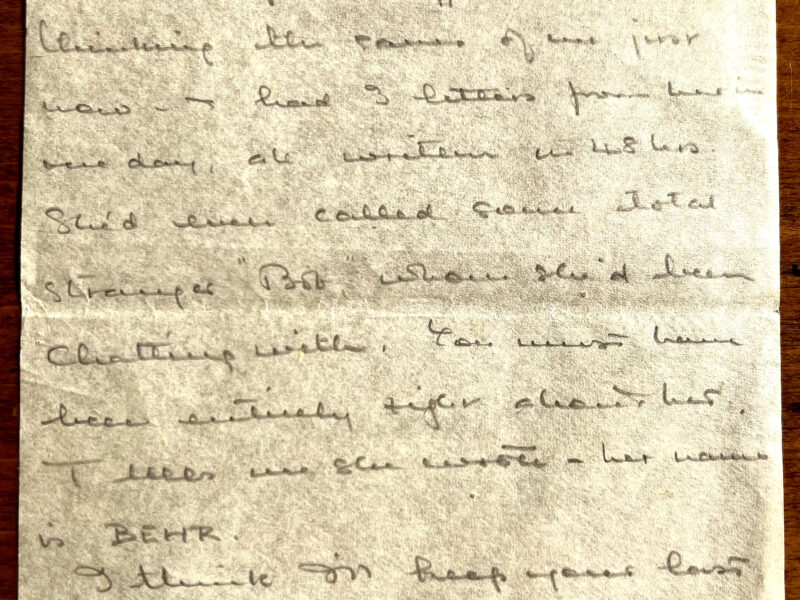 thinking the same of me just
now - I had 3 letters from her in
one day, all written in 48 hrs.
She'd even called some total
stranger "Bob", whom she'd been
chatting with. You must have
been entirely right about her.
I she wrote - her name
is BEHR.
I think I'll keep your last